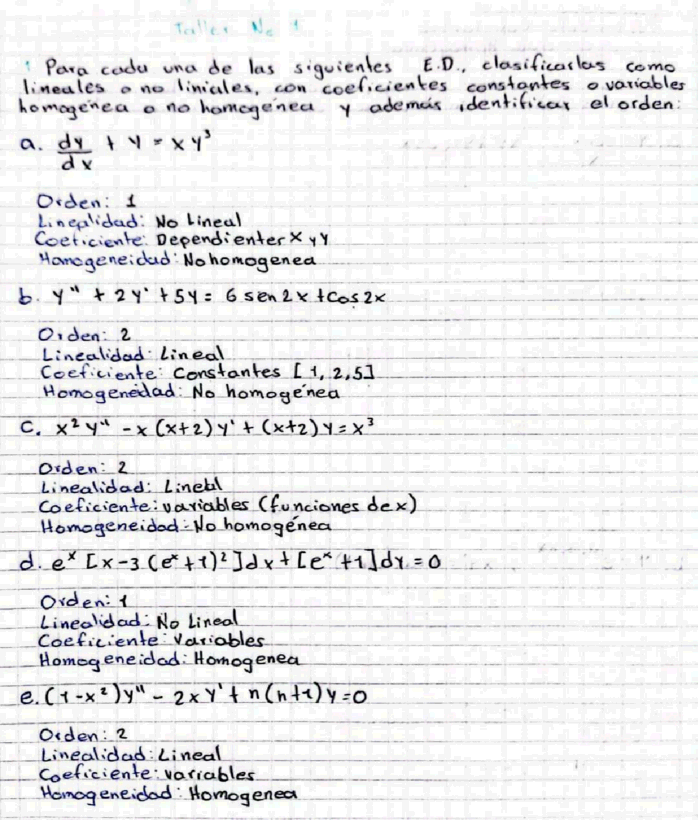 Taller No 1
1 Para cada una de las siguientes E.D., clasificarlas como
lineales o no liniales, con coeficientes constantes o variables
homogénea o no homogénea y además identificar el orden:
a. dy/dx + y = xy³
Orden: 1
Linealidad: No Lineal
Coeficiente: Dependienter x y y
Homogeneidad: No homogenea
b. y" + 2y' + 5y = 6 sen 2x + Cos 2x
Orden: 2
Linealidad: Lineal
Coeficiente: Constantes [1, 2, 5]
Homogeneidad: No homogénea
C. x² y" - x (x+2) y' + (x+2) y = x³
Orden: 2
Linealidad: Lineal
Coeficiente: variables (funciones de x)
Homogeneidad: No homogénea
d. eˣ [x - 3 (eˣ + 1)²] dx + [eˣ + 1] dy = 0
Orden: 1
Linealidad: No Lineal
Coeficiente: Variables
Homogeneidad: Homogenea
e. (1 - x²) y" - 2xy' + n(n+1) y = 0
Orden: 2
Linealidad: Lineal
Coeficiente: variables
Homogeneidad: Homogenea